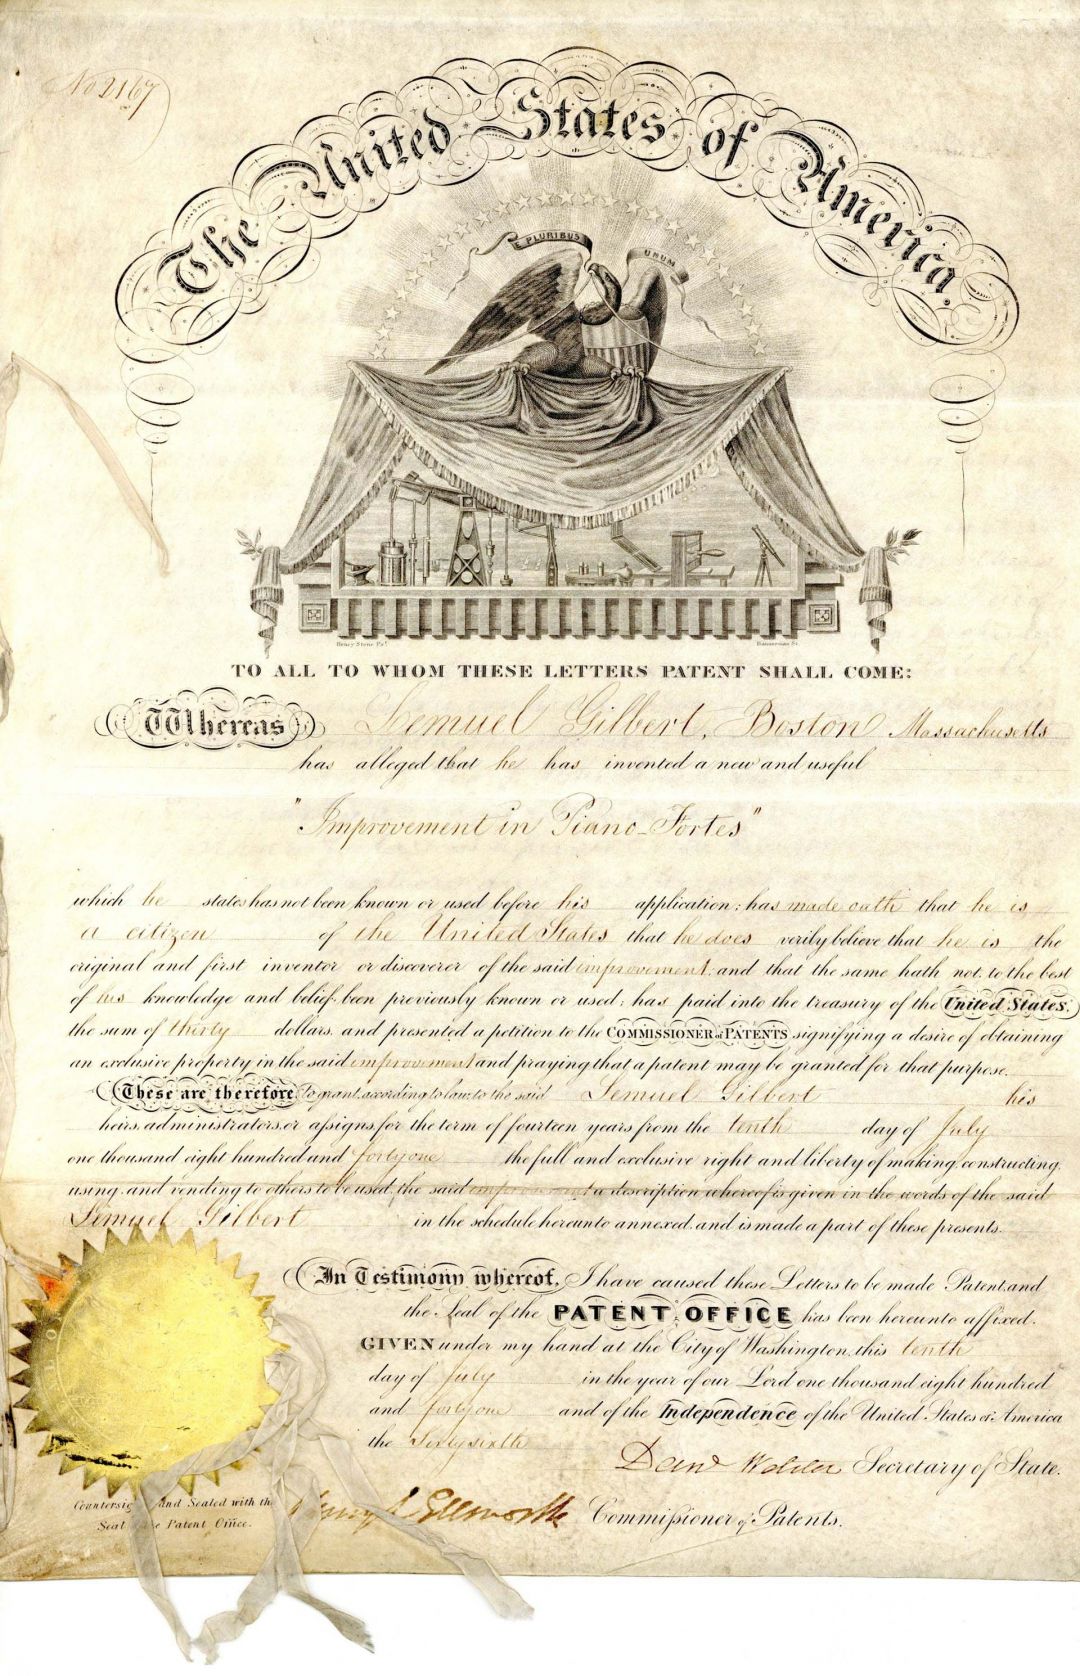 No 2167
The United States of America.
E PLURIBUS UNUM
Henry Stone Del.
TO ALL TO WHOM THESE LETTERS PATENT SHALL COME:
Whereas Lemuel Gilbert, Boston Massachusetts
has alleged that he has invented a new and useful
"Improvement in Piano-Fortes"
which he states has not been known or used before his application; has made oath that he is
a citizen of the United States that he does verily believe that he is the
original and first inventor or discoverer of the said improvement, and that the same hath not, to the best
of his knowledge and belief, been previously known or used; has paid into the treasury of the United States,
the sum of thirty dollars, and presented a petition to the COMMISSIONER of PATENTS signifying a desire of obtaining
an exclusive property in the said improvement and praying that a patent may be granted for that purpose.
These are therefore to grant, according to law, to the said Lemuel Gilbert his
heirs, administrators, or assigns, for the term of fourteen years from the tenth day of July
one thousand eight hundred and forty one the full and exclusive right and liberty of making, constructing,
using, and vending to others to be used, the said improvement a description whereof is given in the words of the said
Lemuel Gilbert in the schedule hereunto annexed, and is made a part of these presents.
In Testimony whereof, I have caused these Letters to be made Patent, and
the Seal of the PATENT OFFICE has been hereunto affixed.
GIVEN under my hand at the City of Washington, this tenth
day of July in the year of our Lord one thousand eight hundred
and forty one and of the Independence of the United States of America
the Sixty sixth
Danl Webster Secretary of State.
Countersigned and Sealed with the
Seal of the Patent Office.
Henry L Ellsworth Commissioner of Patents.